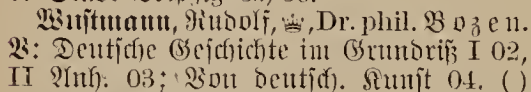 Wustmann, Rudolf, ♕, Dr. phil. Bozen.
V: Deutsche Geschichte im Grundriß I 02,
II Anh. 03; Von deutsch. Kunst 04. ()